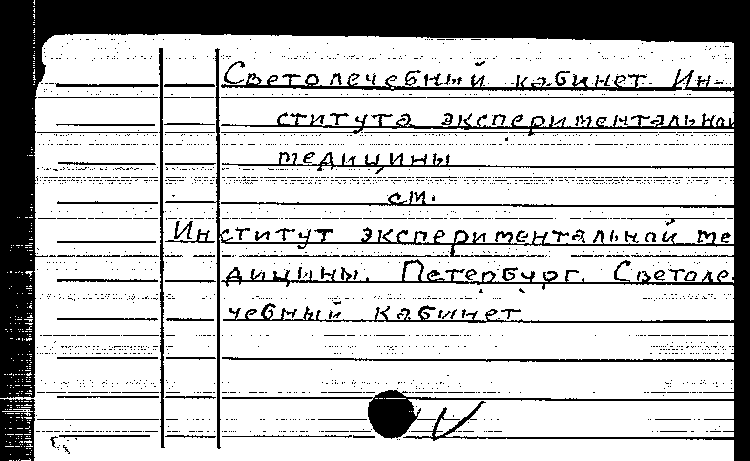 Светолечебный кабинет Ин-
ститута экспериментальной
медицины
см.
Институт экспериментальной ме
дицины. Петербург. Светоле
чебный кабинет